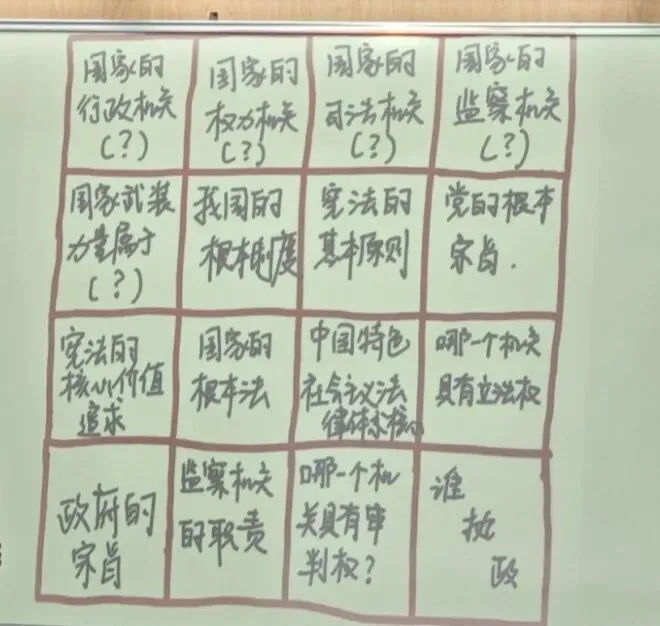 国家的
行政机关
(?)
国家的
权力机关
(?)
国家的
司法机关
(?)
国家的
监察机关
(?)
国家武装
力量属于
(?)
我国的
根本制度
宪法的
基本原则
党的根本
宗旨.
宪法的
核心价值
追求
国家的
根本法
中国特色
社会主义法
律体系核心
哪一个机关
具有立法权
政府的
宗旨
监察机关
的职责
哪一个机
关具有审
判权?
谁
执
政